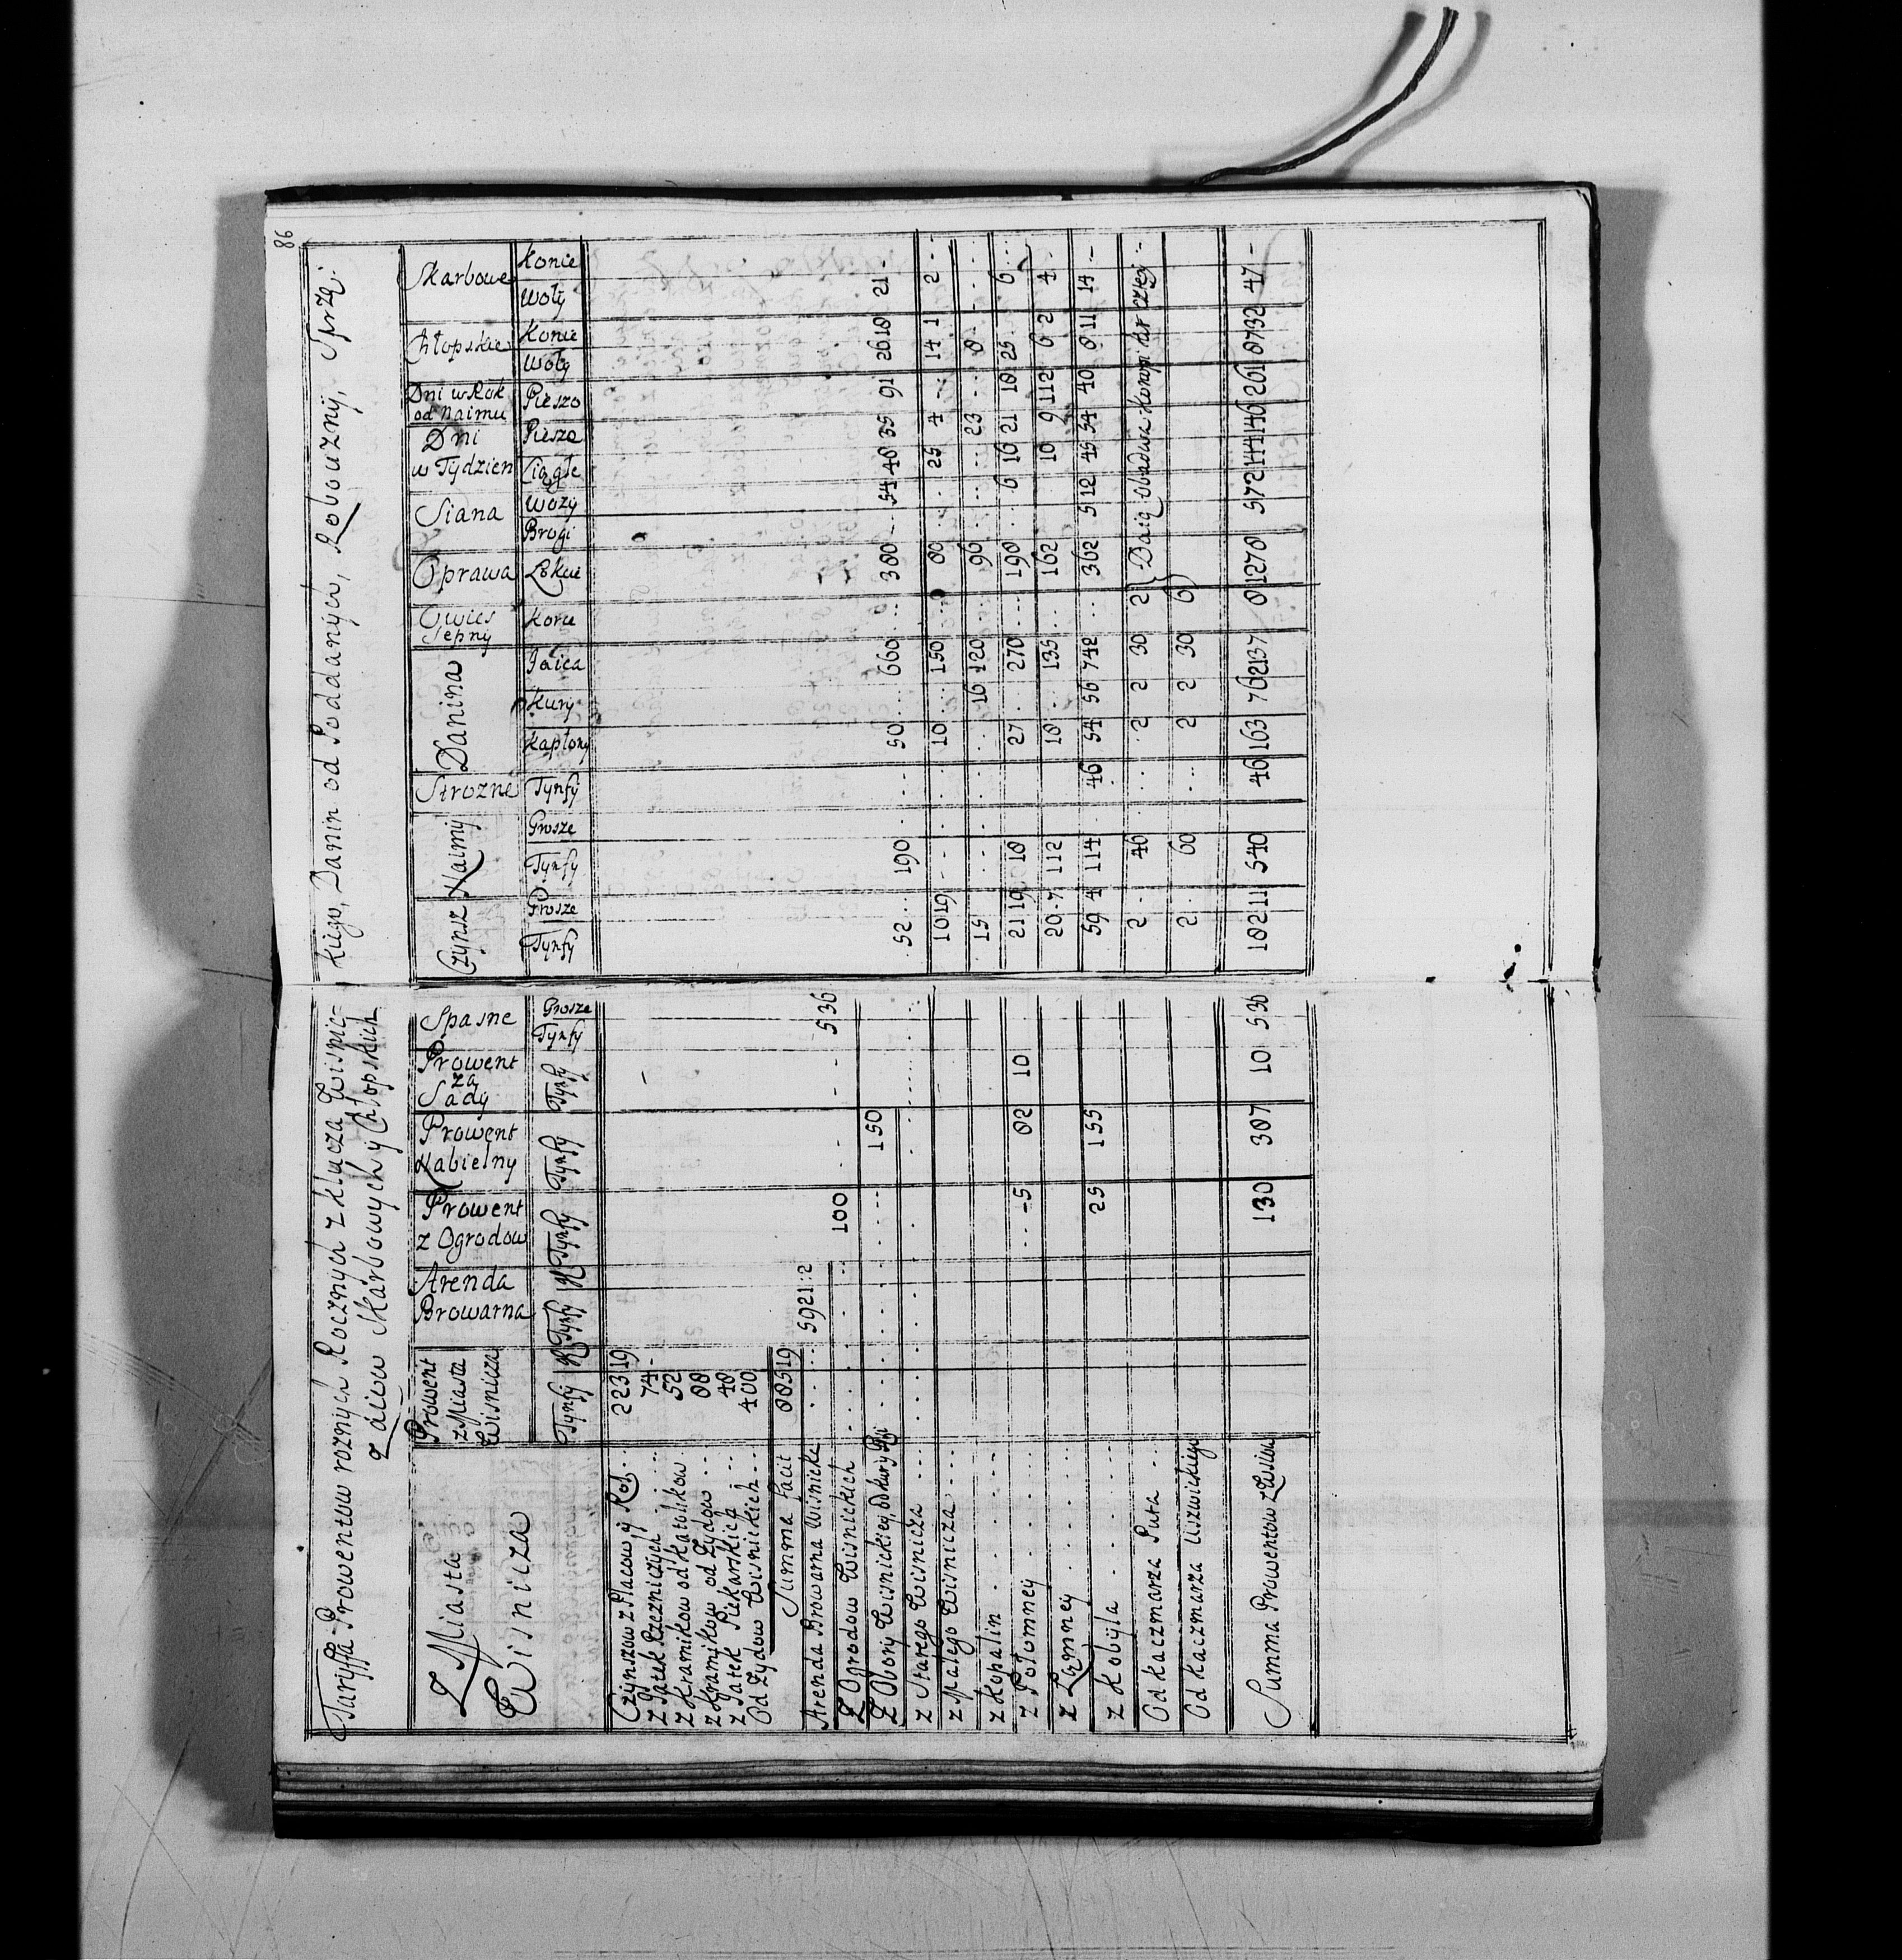 86
Taryffa Prowentow roznych Rocznych z Klucza Wisnic=
kiego, Danin od Poddanych, Robocizny, Sprzę=
żaiow Skarbowych y Chłopskich
Z Miasta Wisnicza | Prowent z Miasta Wisnicza | Arenda Browarna | Prowent z Ogrodow | Prowent Nabielny | Prowent za Sady | Spasne | Czynsz | Naimy | Strozne | Danina | Owies Sepny | Oprawa | Siana | Dni w Tydzien | Dni w Rok od Naimu | Chłopskie | Skarbowe
Tynfy | Tynfy | Tynfy | Tynfy | Tynfy | Tynfy Grosze | Tynfy Grosze | Tynfy Grosze | Tynfy | Kapłony Kury Jaica | Korce | Łokcie | Brogi Wozy | Ciągłe Piesze | Pieszo | Woły Konie | Woły Konie
Czynszow z Placow y Rol 223 19
z Jatek Rzezniczych 74 -
z Kramikow od Katolikow 52
z Kramikow od Zydow 88
z Jatek Piekarskich 48
Od Zydow Wisnickich 400
Summa facit 885 19
Arenda Browarna Wisnicka 5921:2
Z Ogrodow Wisnickich 100 5 36
Z Obory Wisnickiey, od kury 150
z Starego Wisnicza 52 190 50 660 380 54 48 35 91 26 18 21 -
z Małego Wisnicza 10 19 10 150 80 25 4 14 1 2
z Kopalin 15 16 120 96 23 8
z Połomney 5 82 10 21 19 18 27 270 198 6 16 21 18 25 6
z Łomney 20 7 112 18 135 162 10 9 112 6 2 4
z Kobyla 25 155 59 4 114 46 54 56 742 362 5 12 45 54 40 8 11 14 -
Od Kaczmarza Puta 2 46 2 2 30 2 Daią obadwa Konopi
Od Kaczmarza Uszwickiego 2 60 2 2 30 6
Summa Prowentow z Wsiow 130 387 10 5 36 182 11 540 46 163 76 2137 8 1278 5 72 144 146 261 87 32 47 -